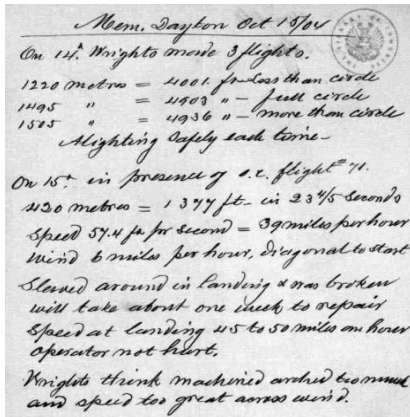 Mem. Dayton Oct 15/04
On 14th Wrights made 3 flights.
1220 metres = 4001 ft - Less than circle
1495 " = 4903 " - full circle
1505 " = 4936 " - more than circle
Alighting Safely each time -
On 15th in presence of O.C. flight # 71.
420 metres = 1377 ft - in 23 4/5 Seconds
Speed 57.4 ft per second = 39 miles per hour
Wind 6 miles per hour, diagonal to start
Slewed around in landing & was broken
will take about one week to repair
Speed at landing 45 to 50 miles an hour
Operator not hurt.
Wrights think machine arched too much
and speed too great across wind.